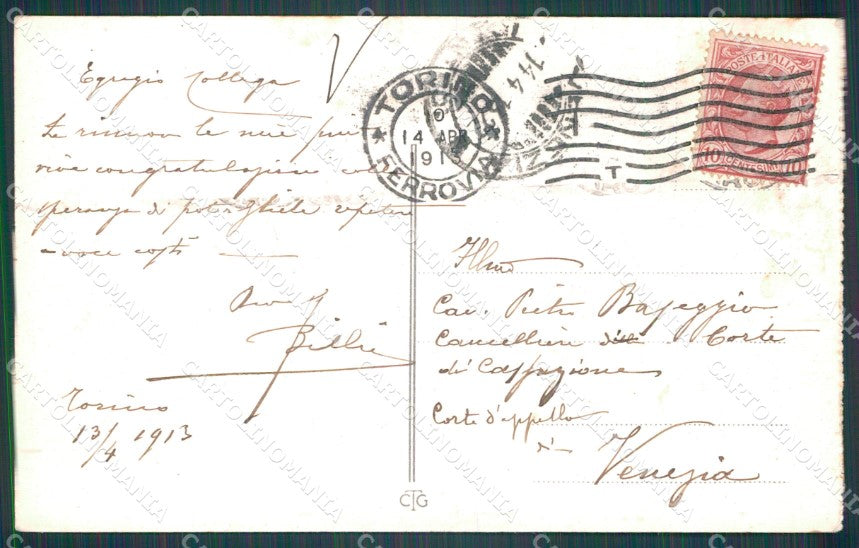 Egregio Collega
Le rinnovo le mie più
vive congratulazioni con
speranza di potergliele ripetere
a voce costì
Torino
13/4 1913
TORINO
FERROVIA
10
14 APR
191
T
POSTE ITALIANE
10 CENTESIMI 10
Illmo
Cav. Pietro Baseggio
Cancelliere Corte
di Cassazione
Corte d'appello
di
Venezia
CTG
CARTOLINOMANIA